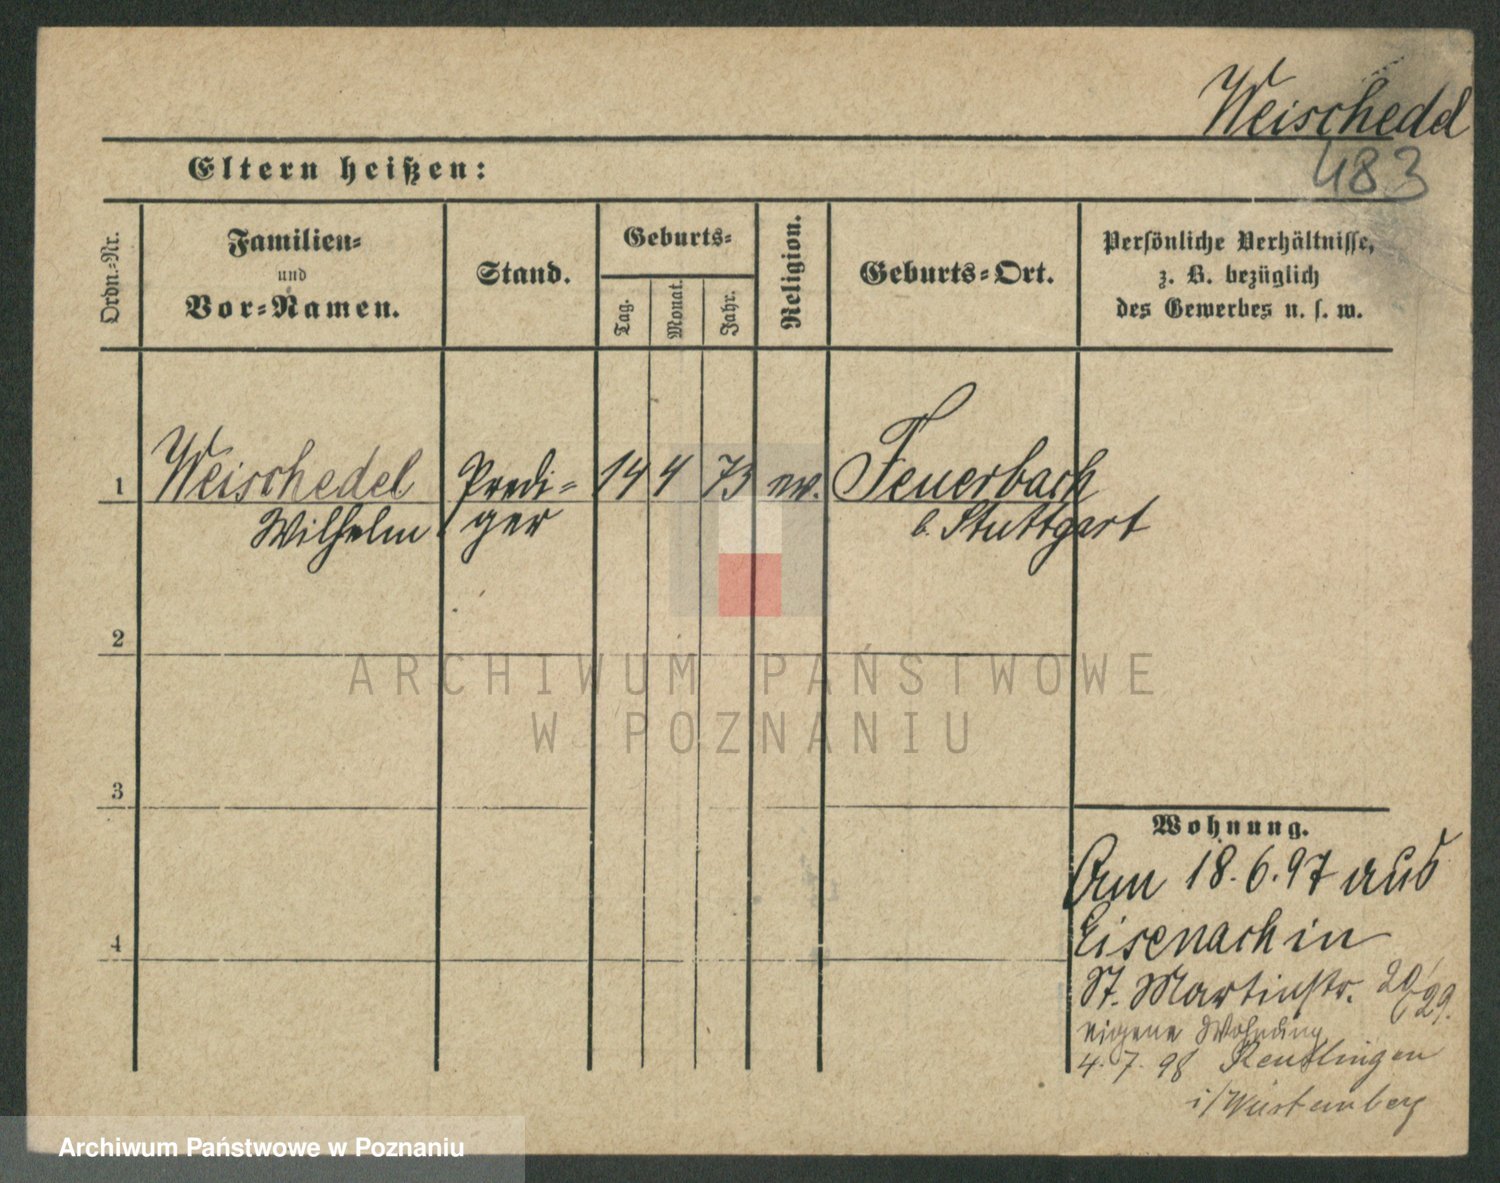 Weischedel
483
Eltern heißen:
Ordn.-Nr.
Familien-
und
Vor-Namen.
Stand.
Geburts-
Tag.
Monat.
Jahr.
Religion.
Geburts-Ort.
Persönliche Verhältnisse,
z. B. bezüglich
des Gewerbes u. s. w.
1 Weischedel Predi- 14 4 73 ev. Feuerbach
Wilhelm ger b. Stuttgart
2
3
4
ARCHIWUM PAŃSTWOWE
W POZNANIU
Wohnung.
Am 18.6.97 aus
Eisenach in
St. Martinstr. 20/29.
eigene Wohnung
4.7.98 Reutlingen
i/Würtemberg
Archiwum Państwowe w Poznaniu